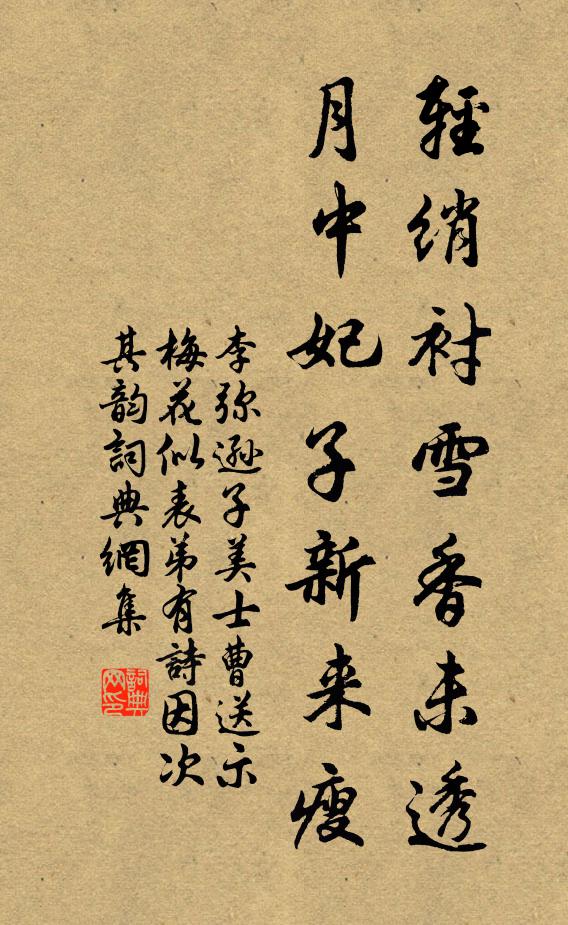 輕綃衬雪香未透
月中妃子新来瘦
李弥遜子美士曹送示
梅花似表弟有詩因次
其韵詞典網集
詞典网印